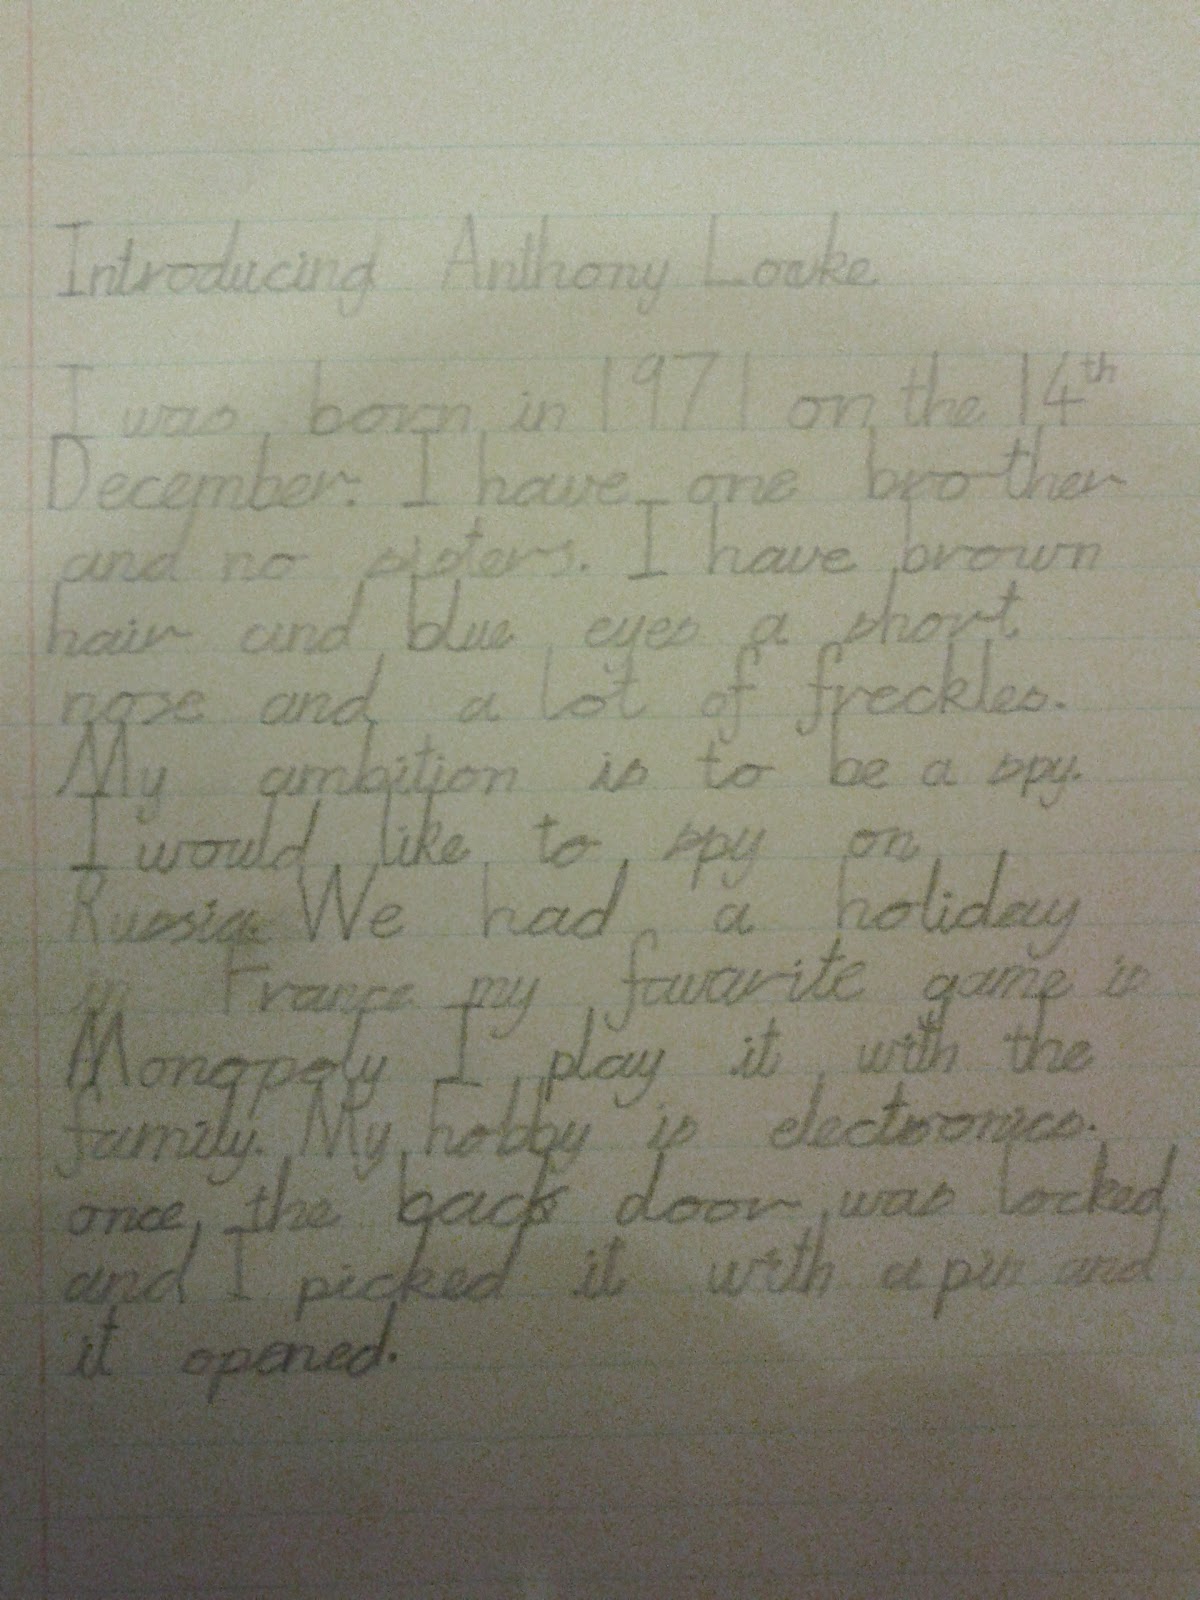 Introducing Anthony Locke
I was born in 1971 on the 14th
December. I have one brother
and no sisters. I have brown
hair and blue eyes a short
nose and a lot of freckles.
My ambition is to be a spy.
I would like to spy on
Russia. We had a holiday
in France my favarite game is
Monopoly I play it with the
family. My hobby is electronics.
once the back door was locked
and I picked it with a pin and
it opened.